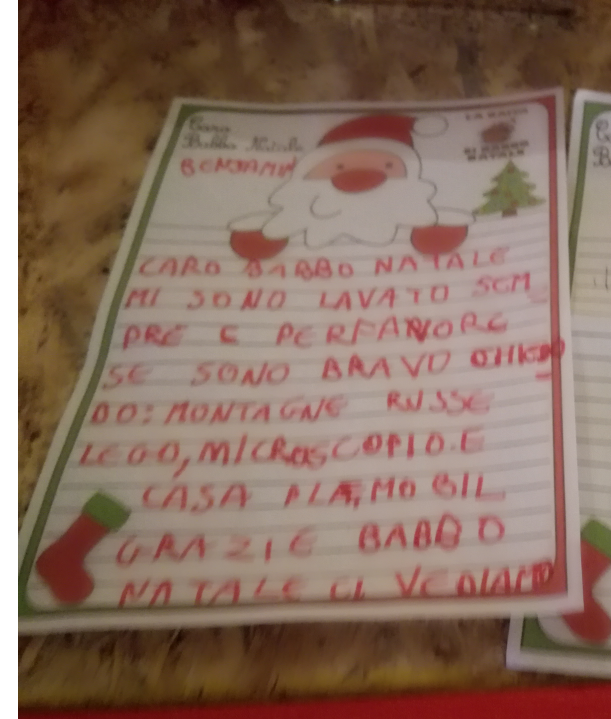 Caro
Babbo Natale
BENJAMIN
LA BAITA
DI BABBO
NATALE
CARO BABBO NATALE
MI SONO LAVATO SEM_
PRE E PERFAVORE
SE SONO BRAVO CHIE_
DO: MONTAGNE RUSSE
LEGO, MICROSCOPIO.E
CASA PLAYMOBIL
GRAZIE BABBO
NATALE CI VEDIAMO